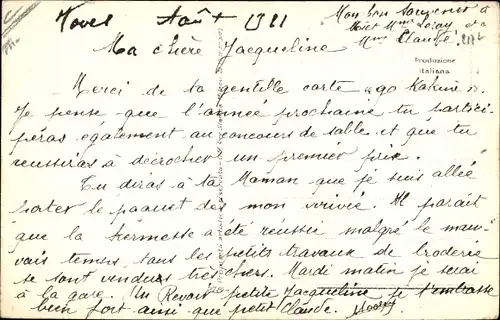 Août 1921
Mon bon souvenir à
Mr et Mme Leroy et à
Mme Claude.
Produzione
Italiana
Ma chère Jacqueline
Merci de ta gentille carte "
Je pense que l'année prochaine tu partici-
peras également au concours de sable et que tu
réussiras à décrocher un premier prix.
Tu diras à ta Maman que je suis allée
porter le paquet dès mon arrivée. Il paraît
que la kermesse a été réussie malgré le mau-
vais temps, tous les petits travaux de broderie
se sont vendus très chers. Mardi matin je serai
à la gare. Au Revoir petite Jacqueline je t'embrasse
bien fort ainsi que petit Claude.